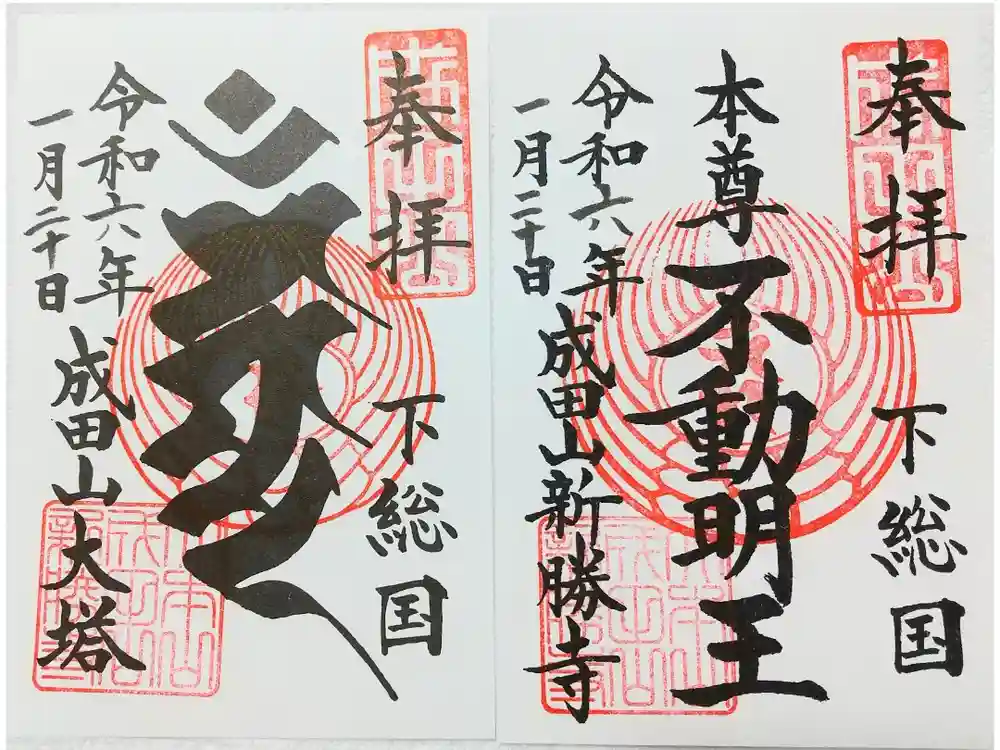 奉拝
下総国
本尊不動明王
令和六年
一月二十日
成田山新勝寺
奉拝
下総国
令和六年
一月二十日
成田山大塔